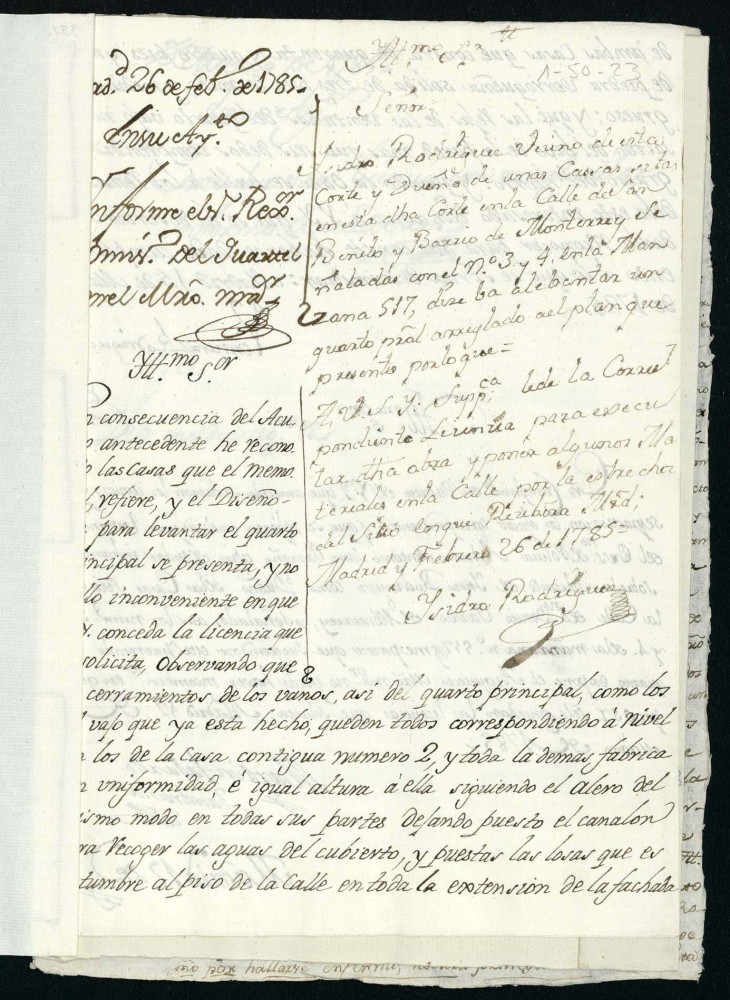 Yll.mo S.or
1-50-23
Señor
Isidro Rodriguez Vecino de esta
Corte y Dueño de unas Cassas sitas
en esta dha Corte en la Calle de San
Benito y Barrio de Monterrey Se
ñaladas con el N.o 3 y 4, en la Man
zana 517, dize ba a lebantar un
quarto pral arreglado ael plan que
presento por lo que=
A V.S.Y. Supp.ca le de la Corres
pondiente Licencia para execu
tar dha obra y poner algunos Ma
teriales en la Calle por lo estrecho
del Sitio en que Rezibira Mrd;
Madrid y Febrero 26 de 1785=
Ysidro Rodriguez
ad.d 26 de feb.o de 1785=
En su Ay.to
nforme el S.r Rexor.
omis.o Del Quartel
on el Mro. mor
Yll.mo S.or
n consecuencia del Acu
o antecedente he recono
o las Casas que el memo
l, refiere, y el Diseño-
para levantar el quarto
incipal se presenta, y no
llo inconveniente en que
Y. conceda la licencia que
solicita, observando que
cerramientos de los vanos, asi del quarto principal, como los
l vajo que ya esta hecho, queden todos correspondiendo á nivel
n los de la Casa contigua numero 2, y toda la demas fabrica
n vniformidad, é igual altura á ella siguiendo el alero del
ismo modo en todas sus partes dejando puesto el canalón
ra recoger las aguas del cubierto, y puestas las losas que es
tumbre al piso de la Calle en toda la extension de la fachada
mo por hallarse enfermo,